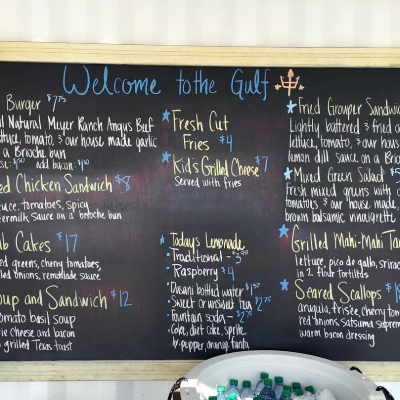 Welcome to the Gulf
Burger $7.75
Natural Meyer Ranch Angus Beef
lettuce, tomato, & our house made garlic
a Brioche bun
add bacon
Chicken Sandwich $8
tomatoes, spicy
sauce on a brioche bun
Cakes $17
greens, cherry tomatoes,
onions, remoulade sauce
and Sandwich $12
tomato basil soup
cheese and bacon
grilled Texas toast
Fresh Cut
Fries $4
Kid's Grilled Cheese $7
Served with fries
Today's Lemonade
- Traditional -
- Raspberry $4
- Dasani bottled water $1.50
- Sweet or unsweet tea $2.75
- Fountain soda - $2.75
Coke, diet coke, sprite,
orange fanta
Fried Grouper Sandwich
Lightly battered & fried
lettuce, tomato, & our house
lemon dill sauce on a
Mixed Green Salad
Fresh mixed greens with
tomatoes & our house made
brown balsamic vinaigrette
Grilled Mahi-Mahi
lettuce, pico de gallo,
in 2 flour tortillas
Seared Scallops
arugula, frisée, cherry
red onions, satsuma
warm bacon dressing